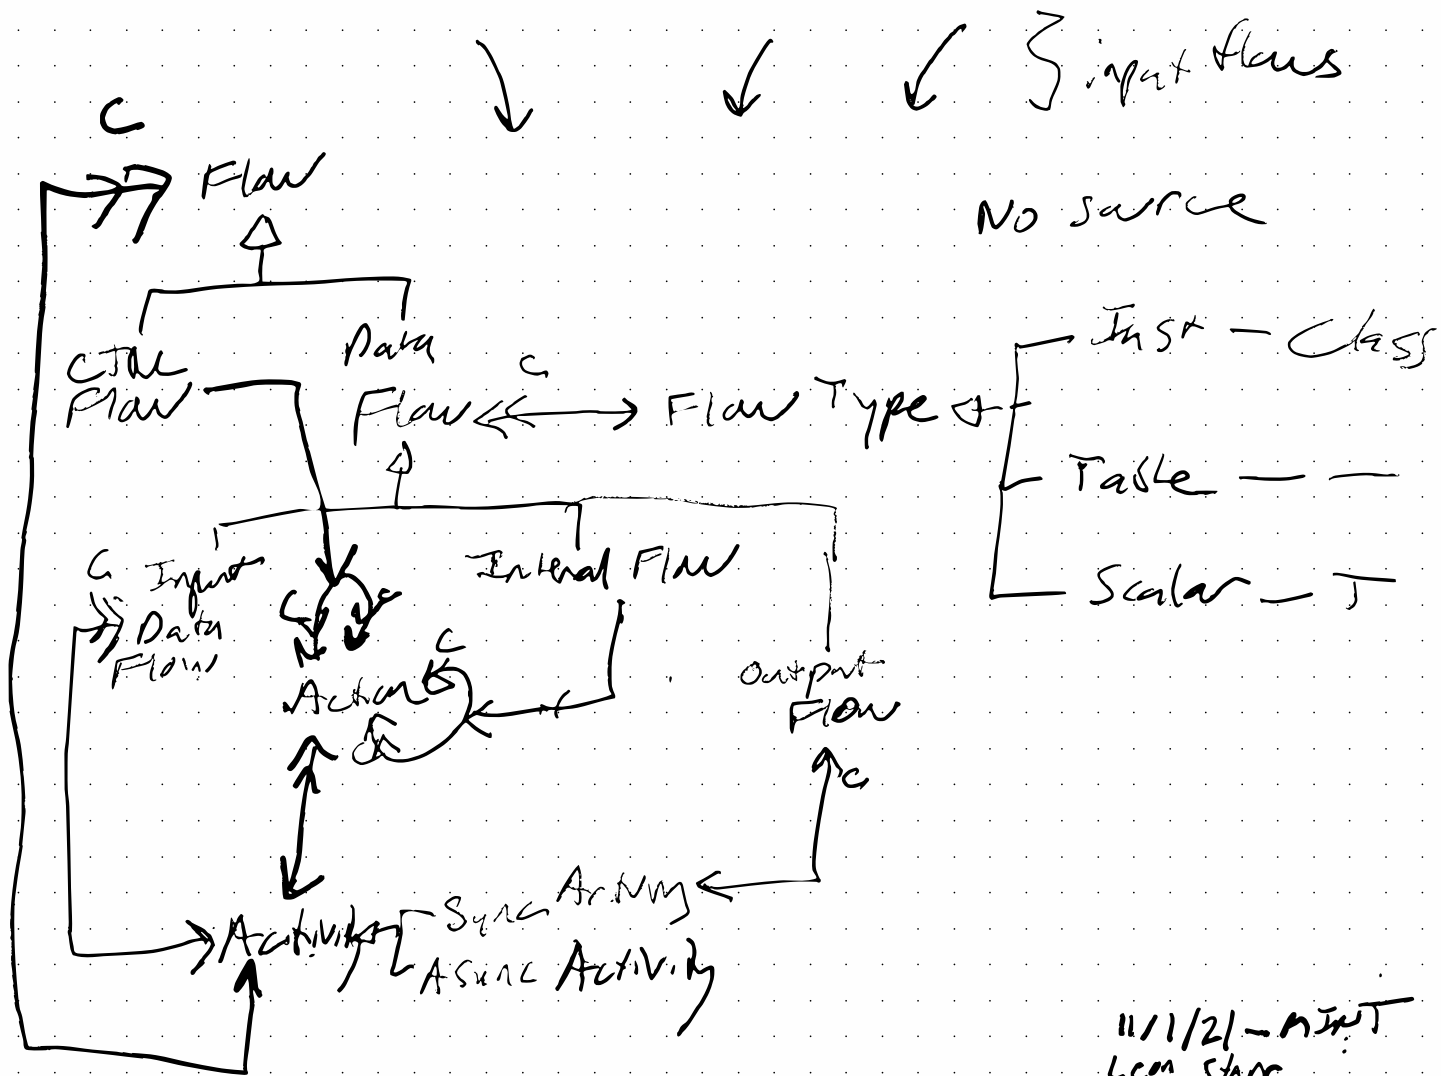 input flows
C
Flow
No source
CTRL
Flow
Data
Flow
C
Flow Type
Inst – Class
Table – –
Scalar – T
C
Input
Data
Flow
C
C
Internal Flow
C
Action
C
Output
Flow
C
Activity
Sync Activity
Async Activity
11/1/21 – MINT
Leon Starr